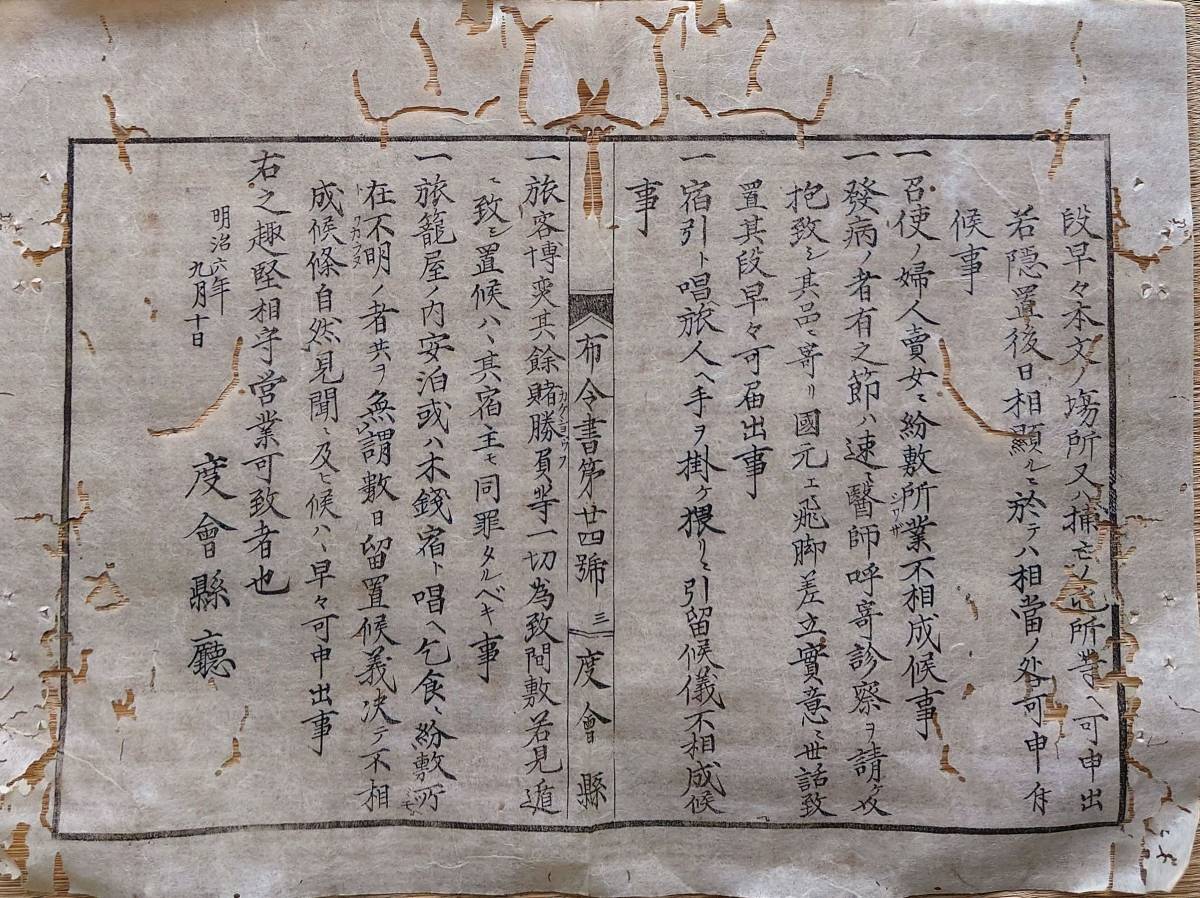 段早々本文ノ塲所又ハ捕亡ノ屯所等ヘ可申出
若隠置後日相顯ルヽニ於テハ相當ノ咎可申付
候事
一召使ノ婦人賣女ニ紛敷所業不相成候事
シワザ
一發病ノ者有之節ハ速ニ醫師呼寄診察ヲ請ケ成
抱致シ其品ニ寄リ國元エ飛脚差立實意ニ世話致
置其段早々可届出事
一宿引ト唱旅人ヘ手ヲ掛ケ猥リニ引留候儀不相成候
事
布令書第廿四號 三 度會縣
一旅客博奕其餘賭勝負等一切為致間敷若見遁
カケショウブ
ニ致シ置候ハヽ其宿主モ同罪タルベキ事
一旅籠屋ノ内安泊或ハ木錢宿ト唱ヘ乞食ニ紛敷所
在不明ノ者共ヲ無謂数日留置候義决テ不相
成候條自然見聞ニ及ヒ候ハヽ早々可申出事
右之趣堅相守営業可致者也
明治六年
九月十日
度會縣廳